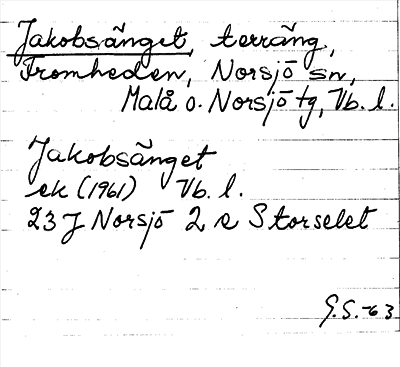 Jakobsänget, terräng,
Fromheden, Norsjö sn,
Malå o. Norsjö tg, Vb. l.
Jakobsänget
ek (1961) Vb. l.
23 J Norsjö 2 e Storselet
G.S.-63